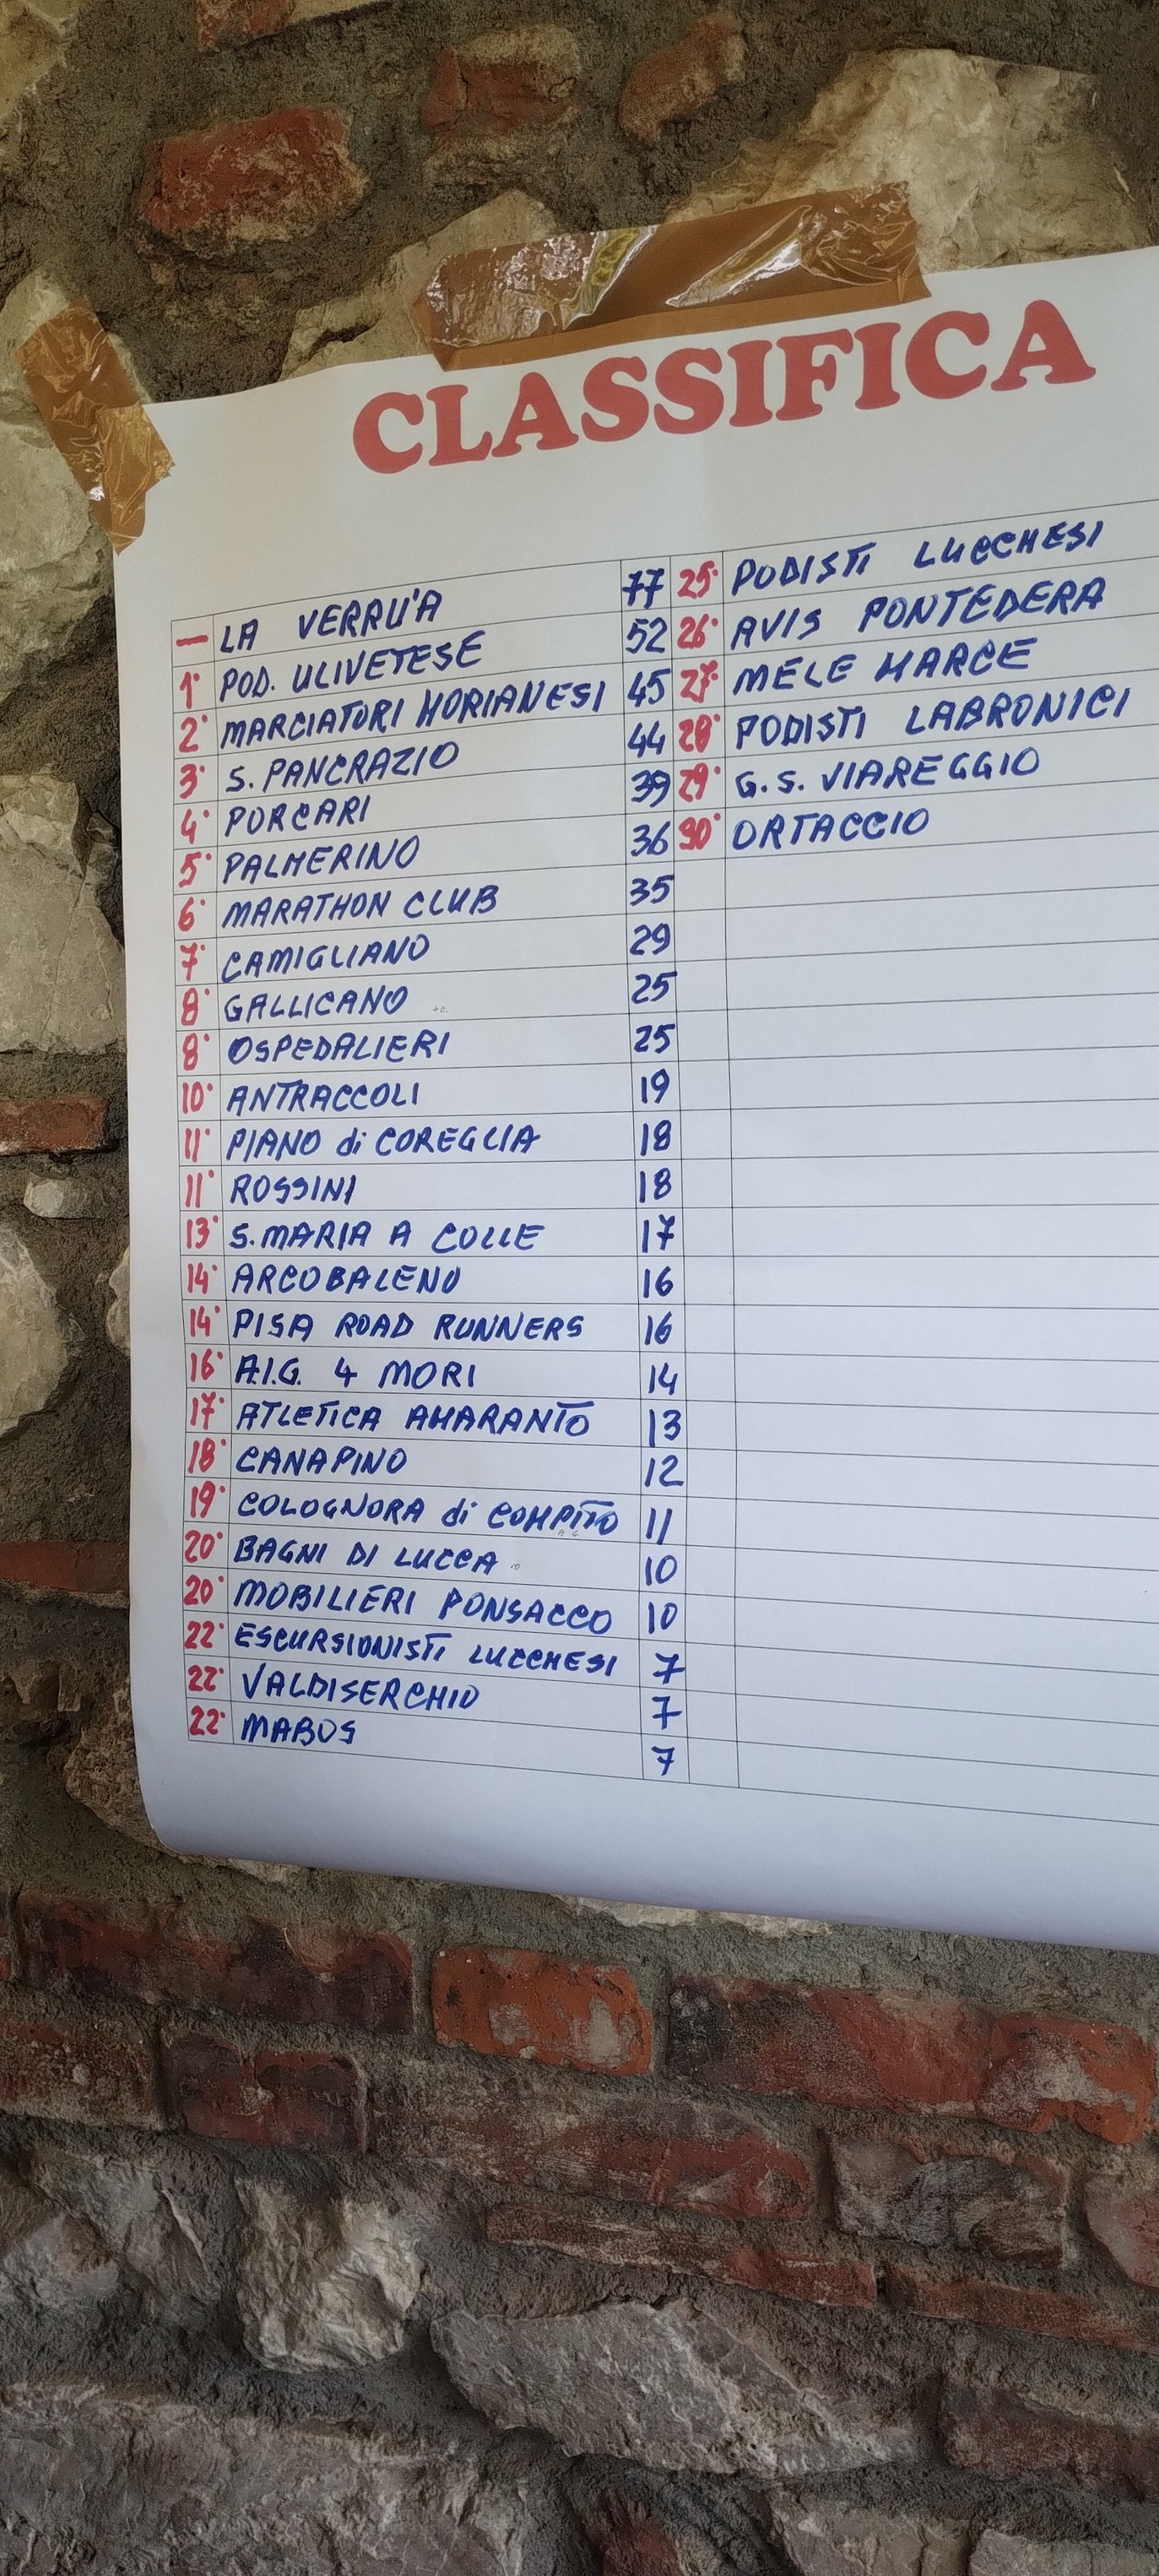 CLASSIFICA
— LA VERRU'A 77
1° POD. ULIVETESE 52
2° MARCIATORI MORIANESI 45
3° S. PANCRAZIO 44
4° PORCARI 39
5° PALMERINO 36
6° MARATHON CLUB 35
7° CAMIGLIANO 29
8° GALLICANO 25
8° OSPEDALIERI 25
10° ANTRACCOLI 19
11° PIANO di COREGLIA 18
11° ROSSINI 18
13° S. MARIA A COLLE 17
14° ARCOBALENO 16
14° PISA ROAD RUNNERS 16
16° A.I.G. 4 MORI 14
17° ATLETICA AMARANTO 13
18° CANAPINO 12
19° COLOGNORA di COMPITO 11
20° BAGNI DI LUCCA 10
20° MOBILIERI PONSACCO 10
22° ESCURSIONISTI LUCCHESI 7
22° VALDISERCHIO 7
22° MABOS 7
25° PODISTI LUCCHESI
26° AVIS PONTEDERA
27° MELE MARCE
28° PODISTI LABRONICI
29° G.S. VIAREGGIO
30° ORTACCIO